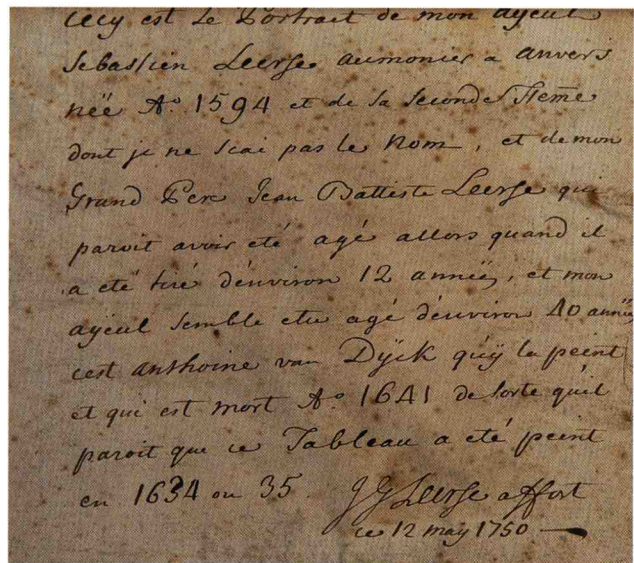 cecy est Le Portrait de mon ayeul
Sebastien Leerse aumonier a anvers
neë A.o 1594 et de sa seconde Feme
dont je ne scai pas le nom, et de mon
Grand Pere Jean Battiste Leerse qui
paroit avoir eté agé allors quand il
a eté tiré dénviron 12 anneÿ, et mon
ayeul semble etre agé dénviron 40 anneÿ
cest anthoine van Dÿck qúÿ la peint
et qui est mort A.o 1641 de sorte quil
paroit que ce Tableau a eté peint
en 1634 ou 35. JG Leerse a ffort
ce 12 maÿ 1750